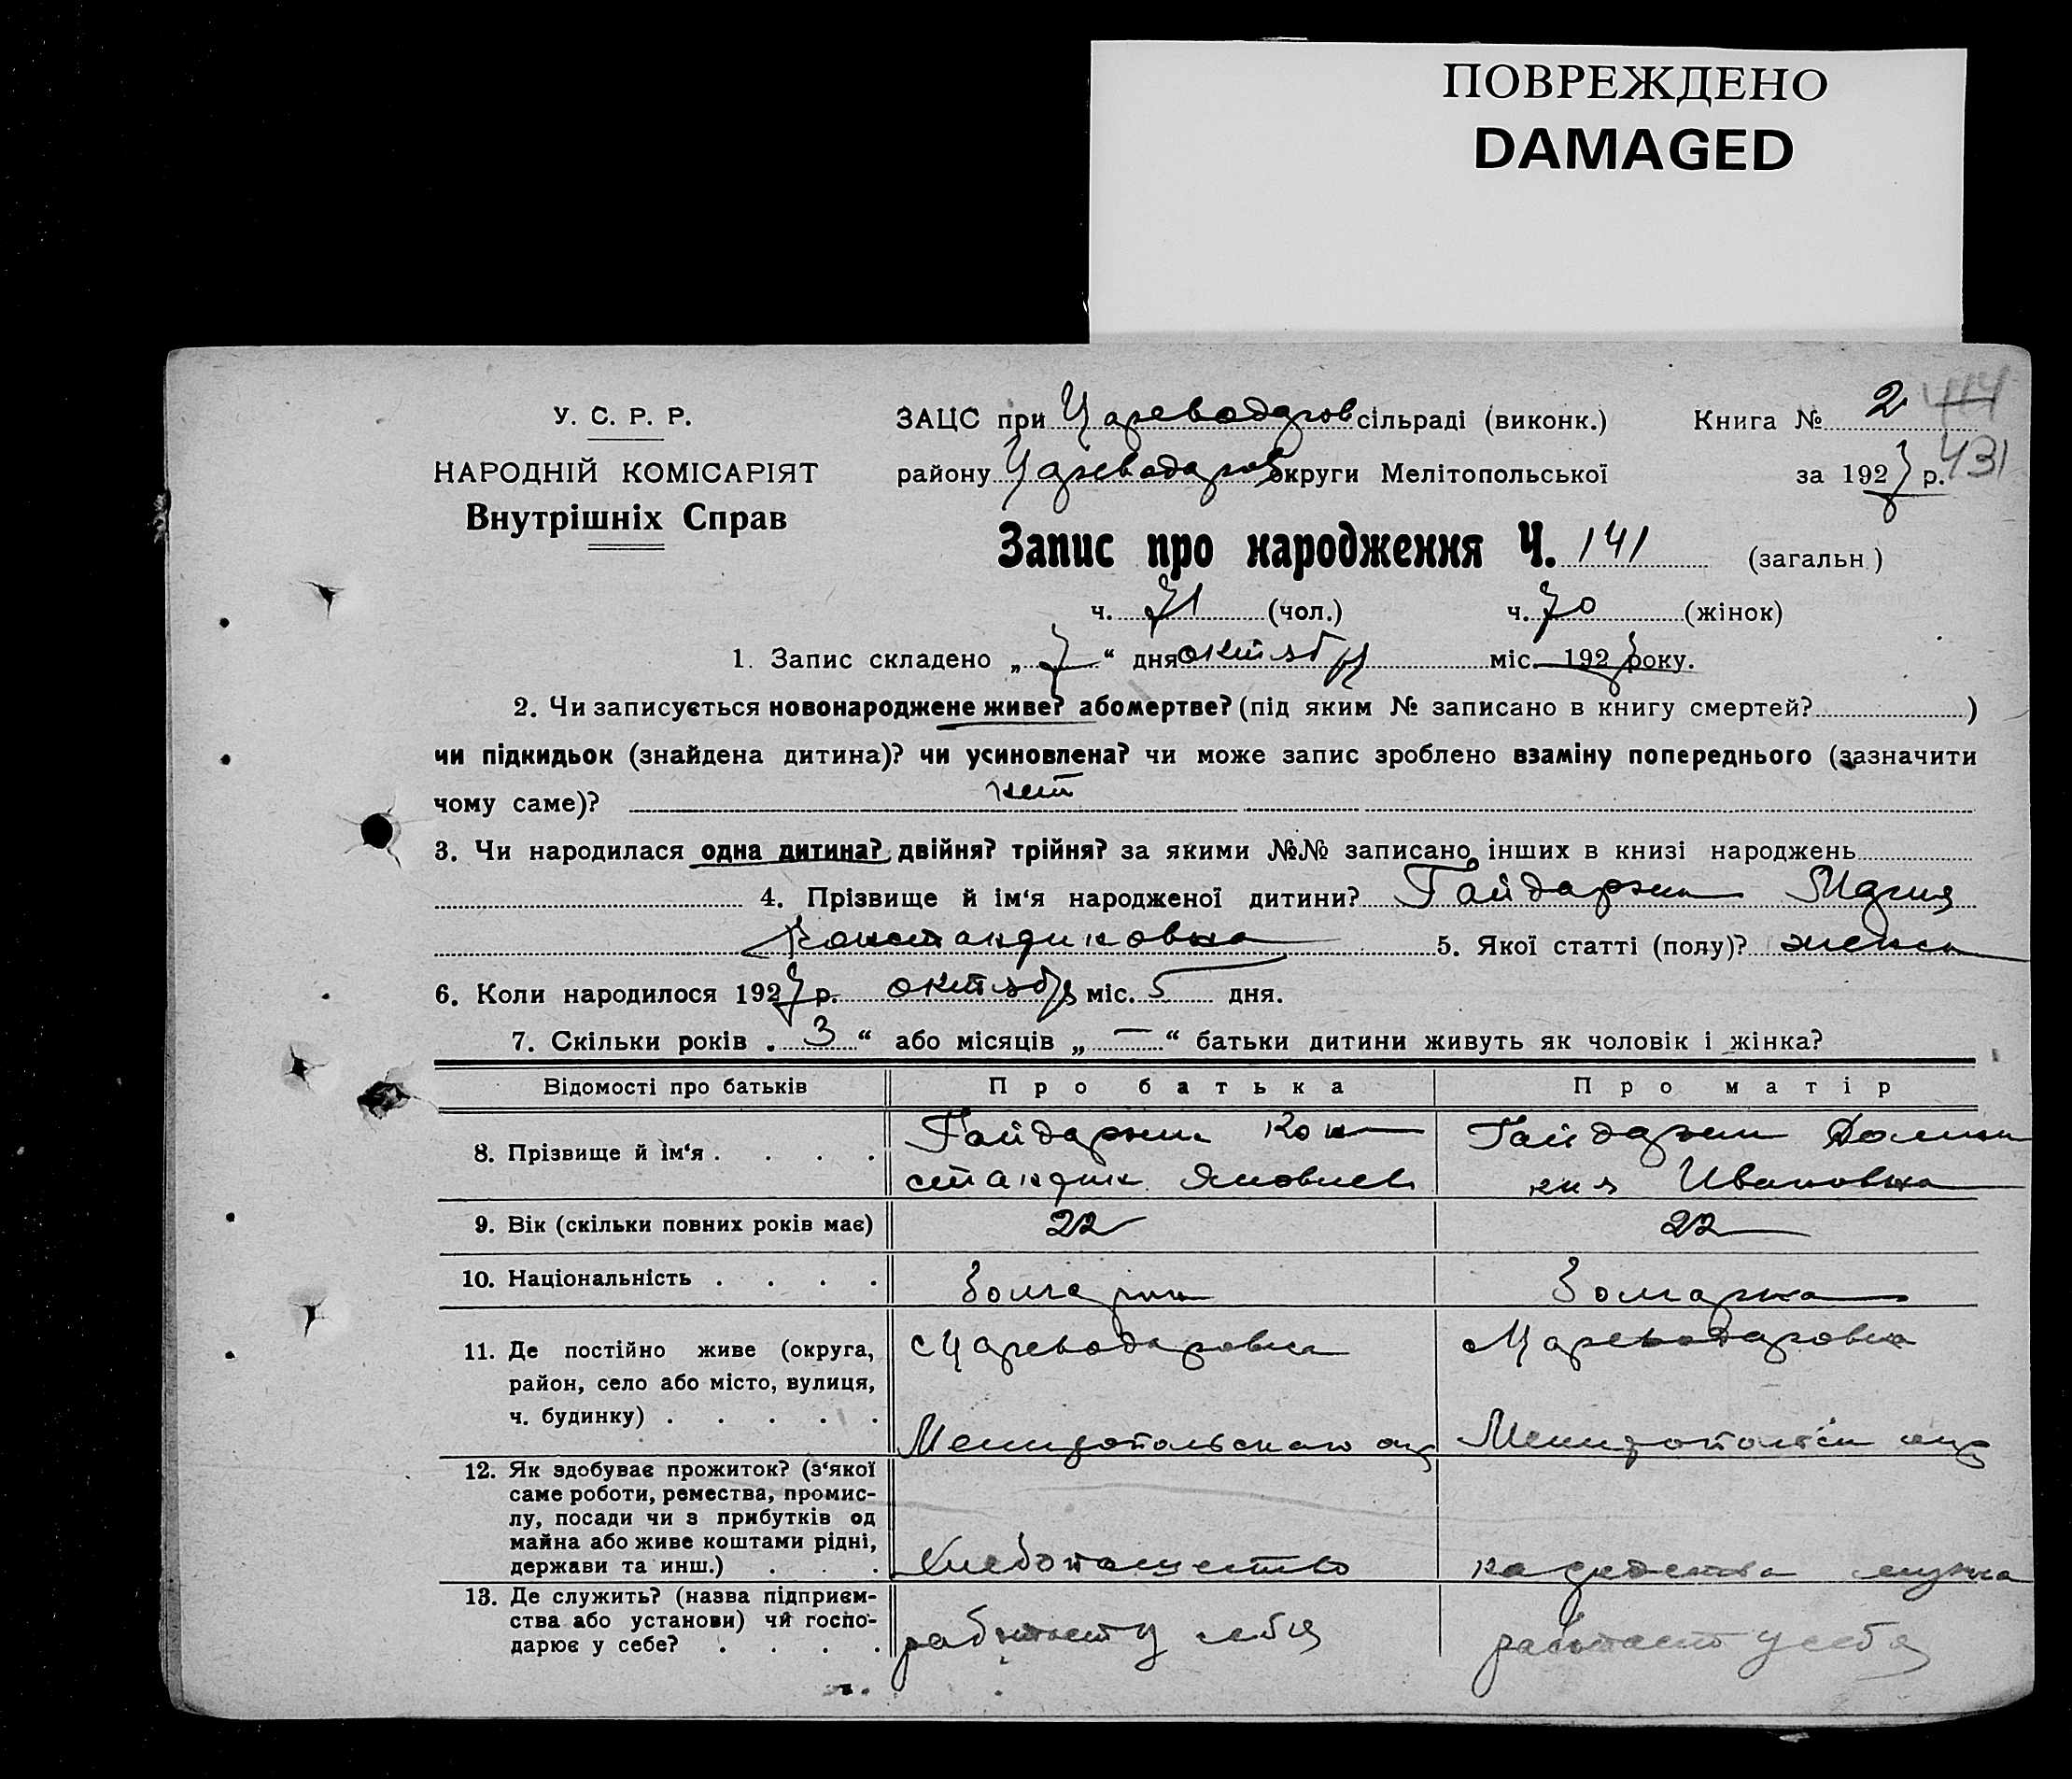 ПОВРЕЖДЕНО
DAMAGED
У. С. Р. Р.
НАРОДНІЙ КОМІСАРІЯТ
Внутрішніх Справ
ЗАЦС при Цареводаров сільраді (виконк.) Книга № 2 414
району Цареводаров округи Мелітопольської за 1927 р. 431
Запис про народження Ч. 141 (загальн.)
ч. 71 (чол.) ч. 70 (жінок)
1. Запис складено „ 7 “ дня октября міс. 1927 року.
2. Чи записується новонароджене живе? або мертве? (під яким № записано в книгу смертей? )
чи підкидьок (знайдена дитина)? чи усиновлена? чи може запис зроблено взаміну попереднього (зазначити
чому саме)? нет
3. Чи народилася одна дитина? двійня? трійня? за якими №№ записано інших в книзі народжень
4. Прізвище й ім‘я народженої дитини? Гайдаржи Мария
Константиновна 5. Якої статті (полу)? женск
6. Коли народилося 1927 р. октября міс. 5 дня.
7. Скільки років „ 3 “ або місяців „ — “ батьки дитини живуть як чоловік і жінка?
Відомості про батьків Про батька Про матір
8. Прізвище й ім‘я . . . . Гайдаржи Кон
стантин Яковлев Гайдаржи Домни
кия Ивановна
9. Вік (скільки повних років має) 22 22
10. Національність . . . . болгарин болгарка
11. Де постійно живе (округа,
район, село або місто, вулиця,
ч. будинку) . . . . .
с Цареводаровка
Мелитопольского окр
с Цареводаровка
Мелитопольск окр
12. Як здобуває прожиток? (з‘якої
саме роботи, ремества, промис-
лу, посади чи з прибутків од
майна або живе коштами рідні,
держави та инш.) . . .
хлебопашество
на средства мужа
13. Де служить? (назва підприєм-
ства або установи) чи госпо-
дарює у себе? . . . .
работает у себя
работает у себя